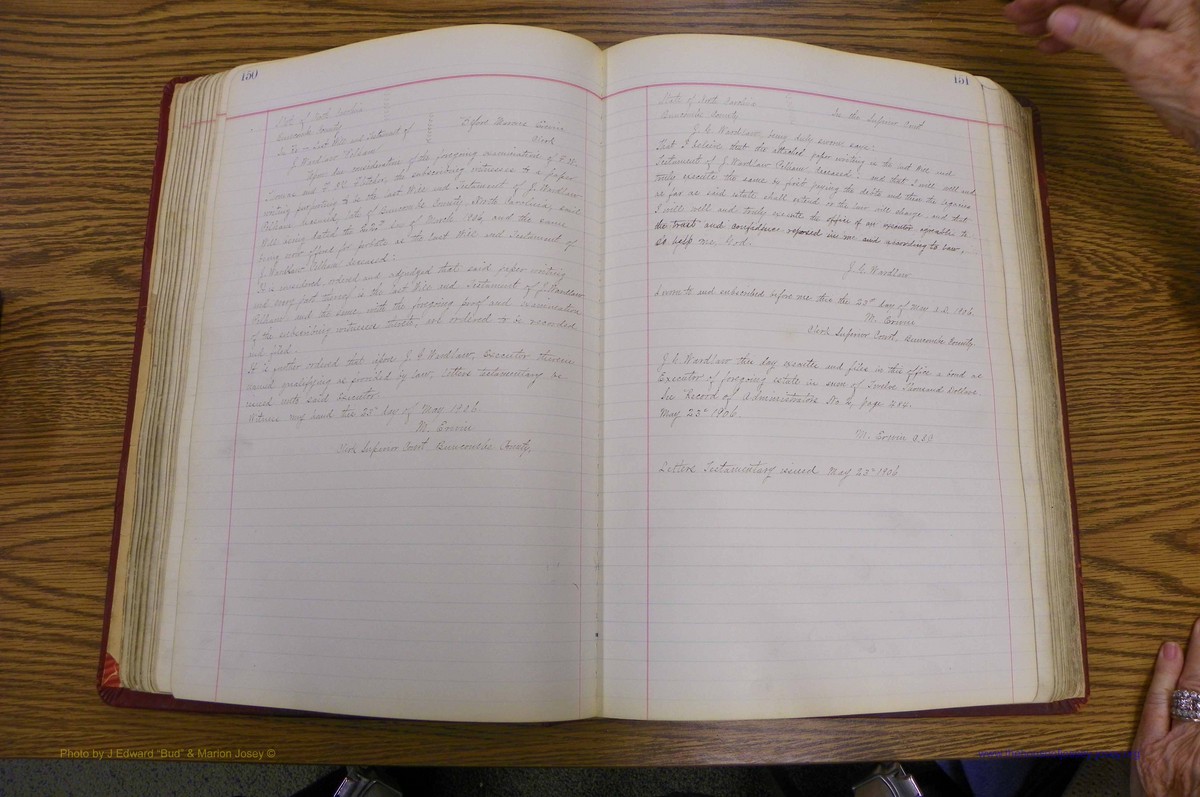 150
State of North Carolina
Buncombe County
In Re - Last Will and Testament of
J. Wardlaw Pelham
Before Marcus Erwin
Clerk
Upon due consideration of the foregoing examination of
and Fletcher, the subscribing witnesses to a paper
writing purporting to be the last Will and Testament of J. Wardlaw
Pelham deceased, late of Buncombe County, North Carolina, said
Will being dated the day of March 1906, and the same
being now offered for probate as the last Will and Testament of
J. Wardlaw Pelham deceased:
It is considered, ordered and adjudged that said paper writing
and every part thereof is the last Will and Testament of J. Wardlaw
Pelham and the same with the foregoing proof and examination
of the subscribing witnesses thereto, are ordered to be recorded
and filed.
It is further ordered that upon J. G. Wardlaw, Executor therein
named qualifying as provided by law, letters testamentary be
issued unto said Executor.
Witness my hand this 23d day of May 1906.
M. Erwin
Clerk Superior Court Buncombe County,
151
State of North Carolina
Buncombe County
In the Superior Court
J. G. Wardlaw, being duly sworn says:
That I believe that the attached paper writing is the last Will and
Testament of J. Wardlaw Pelham deceased: and that I will well and
truly execute the same by first paying the debts and then the legacies
as far as said estate shall extend or the law will charge and that
I will well and truly execute the office of an executor agreeable to
the trust and confidence reposed in me and according to law,
So help me, God.
J. G. Wardlaw
Sworn to and subscribed before me this the 23d day of May A.D. 1906.
M. Erwin
Clerk Superior Court, Buncombe County.
J. G. Wardlaw this day executes and files in this office a bond as
Executor of foregoing estate in sum of Twelve Thousand Dollars.
See Record of Administrators No. page 284.
May 23d 1906.
M. Erwin
Letters Testamentary issued May 23d 1906
Photo by J Edward "Bud" & Marion Josey ©